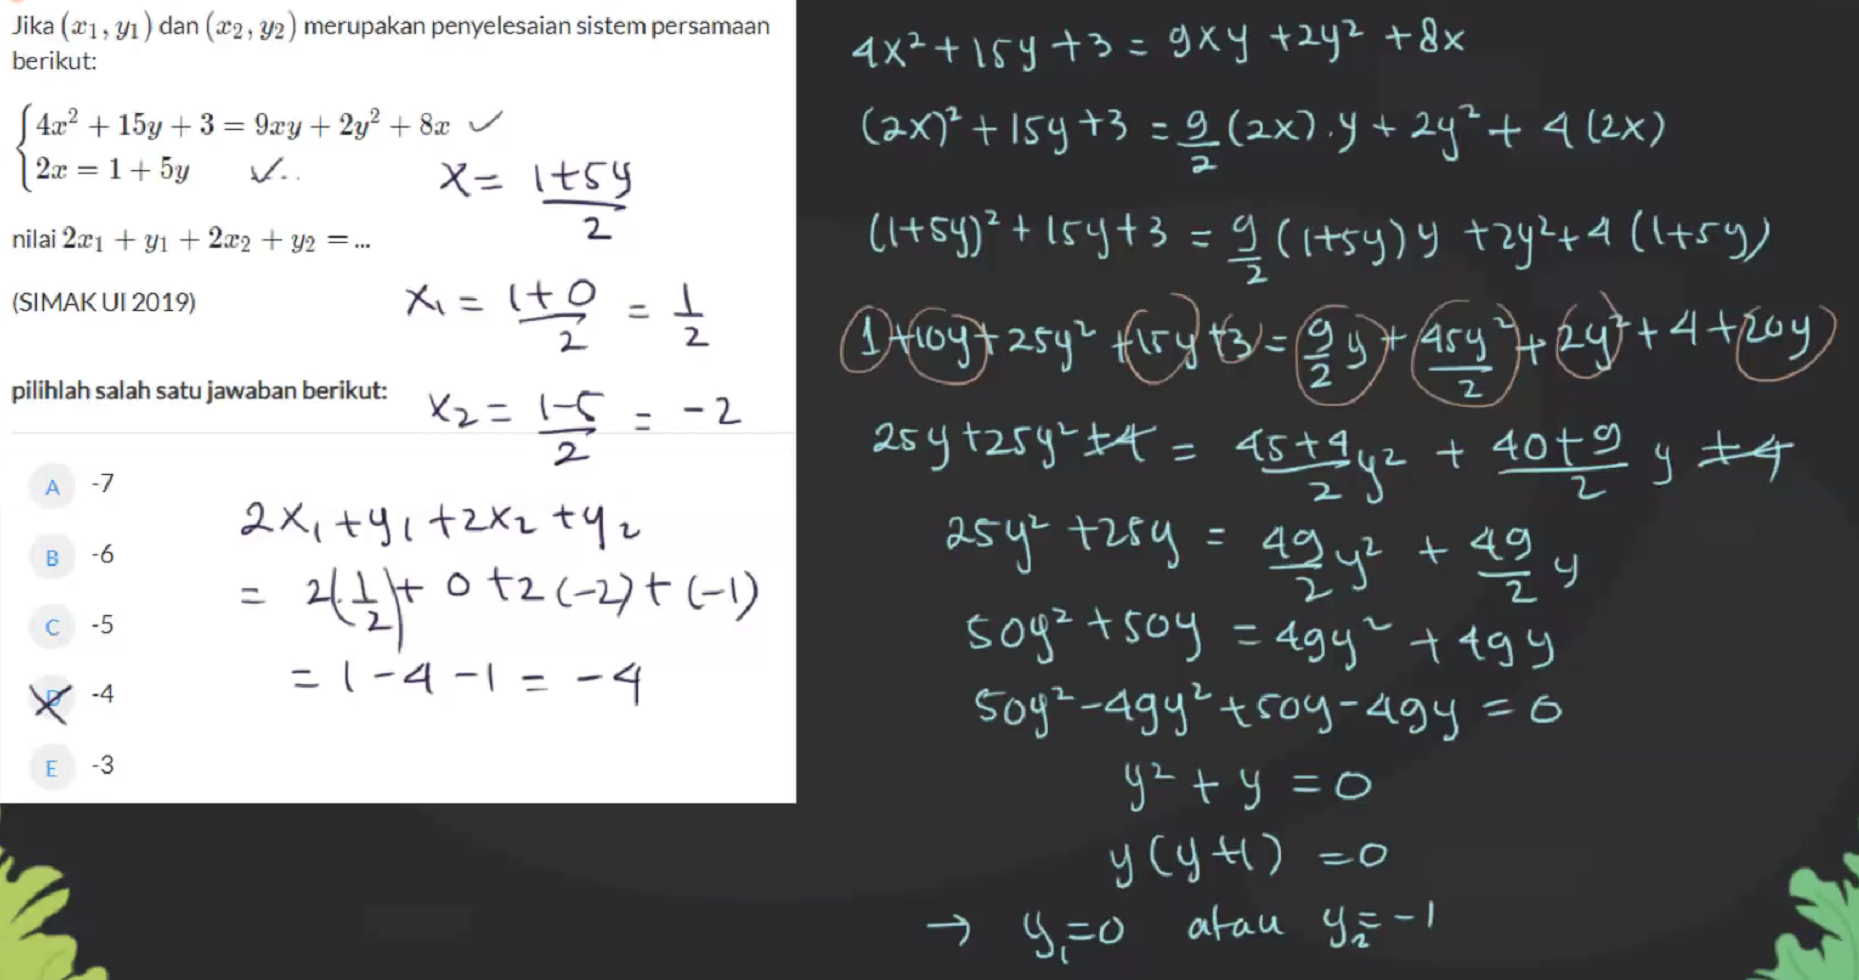 Jika (x₁, y₁) dan (x₂, y₂) merupakan penyelesaian sistem persamaan
berikut:
4x² + 15y + 3 = 9xy + 2y² + 8x ✓
2x = 1 + 5y ✓..
x = (1+5y)/2
nilai 2x₁ + y₁ + 2x₂ + y₂ = ...
(SIMAK UI 2019)
x₁ = (1+0)/2 = 1/2
pilihlah salah satu jawaban berikut:
x₂ = (1-5)/2 = -2
A -7
B -6
C -5
D -4
E -3
2x₁ + y₁ + 2x₂ + y₂
= 2(1/2) + 0 + 2(-2) + (-1)
= 1 - 4 - 1 = -4
4x² + 15y + 3 = 9xy + 2y² + 8x
(2x)² + 15y + 3 = 9/2 (2x).y + 2y² + 4(2x)
(1+5y)² + 15y + 3 = 9/2 (1+5y)y + 2y² + 4(1+5y)
1 + 10y + 25y² + 15y + 3 = 9/2 y + 45y²/2 + 2y² + 4 + 20y
25y + 25y² + 4 = (45+4)/2 y² + (40+9)/2 y + 4
25y² + 25y = 49/2 y² + 49/2 y
50y² + 50y = 49y² + 49y
50y² - 49y² + 50y - 49y = 0
y² + y = 0
y(y+1) = 0
→ y₁ = 0 atau y₂ = -1